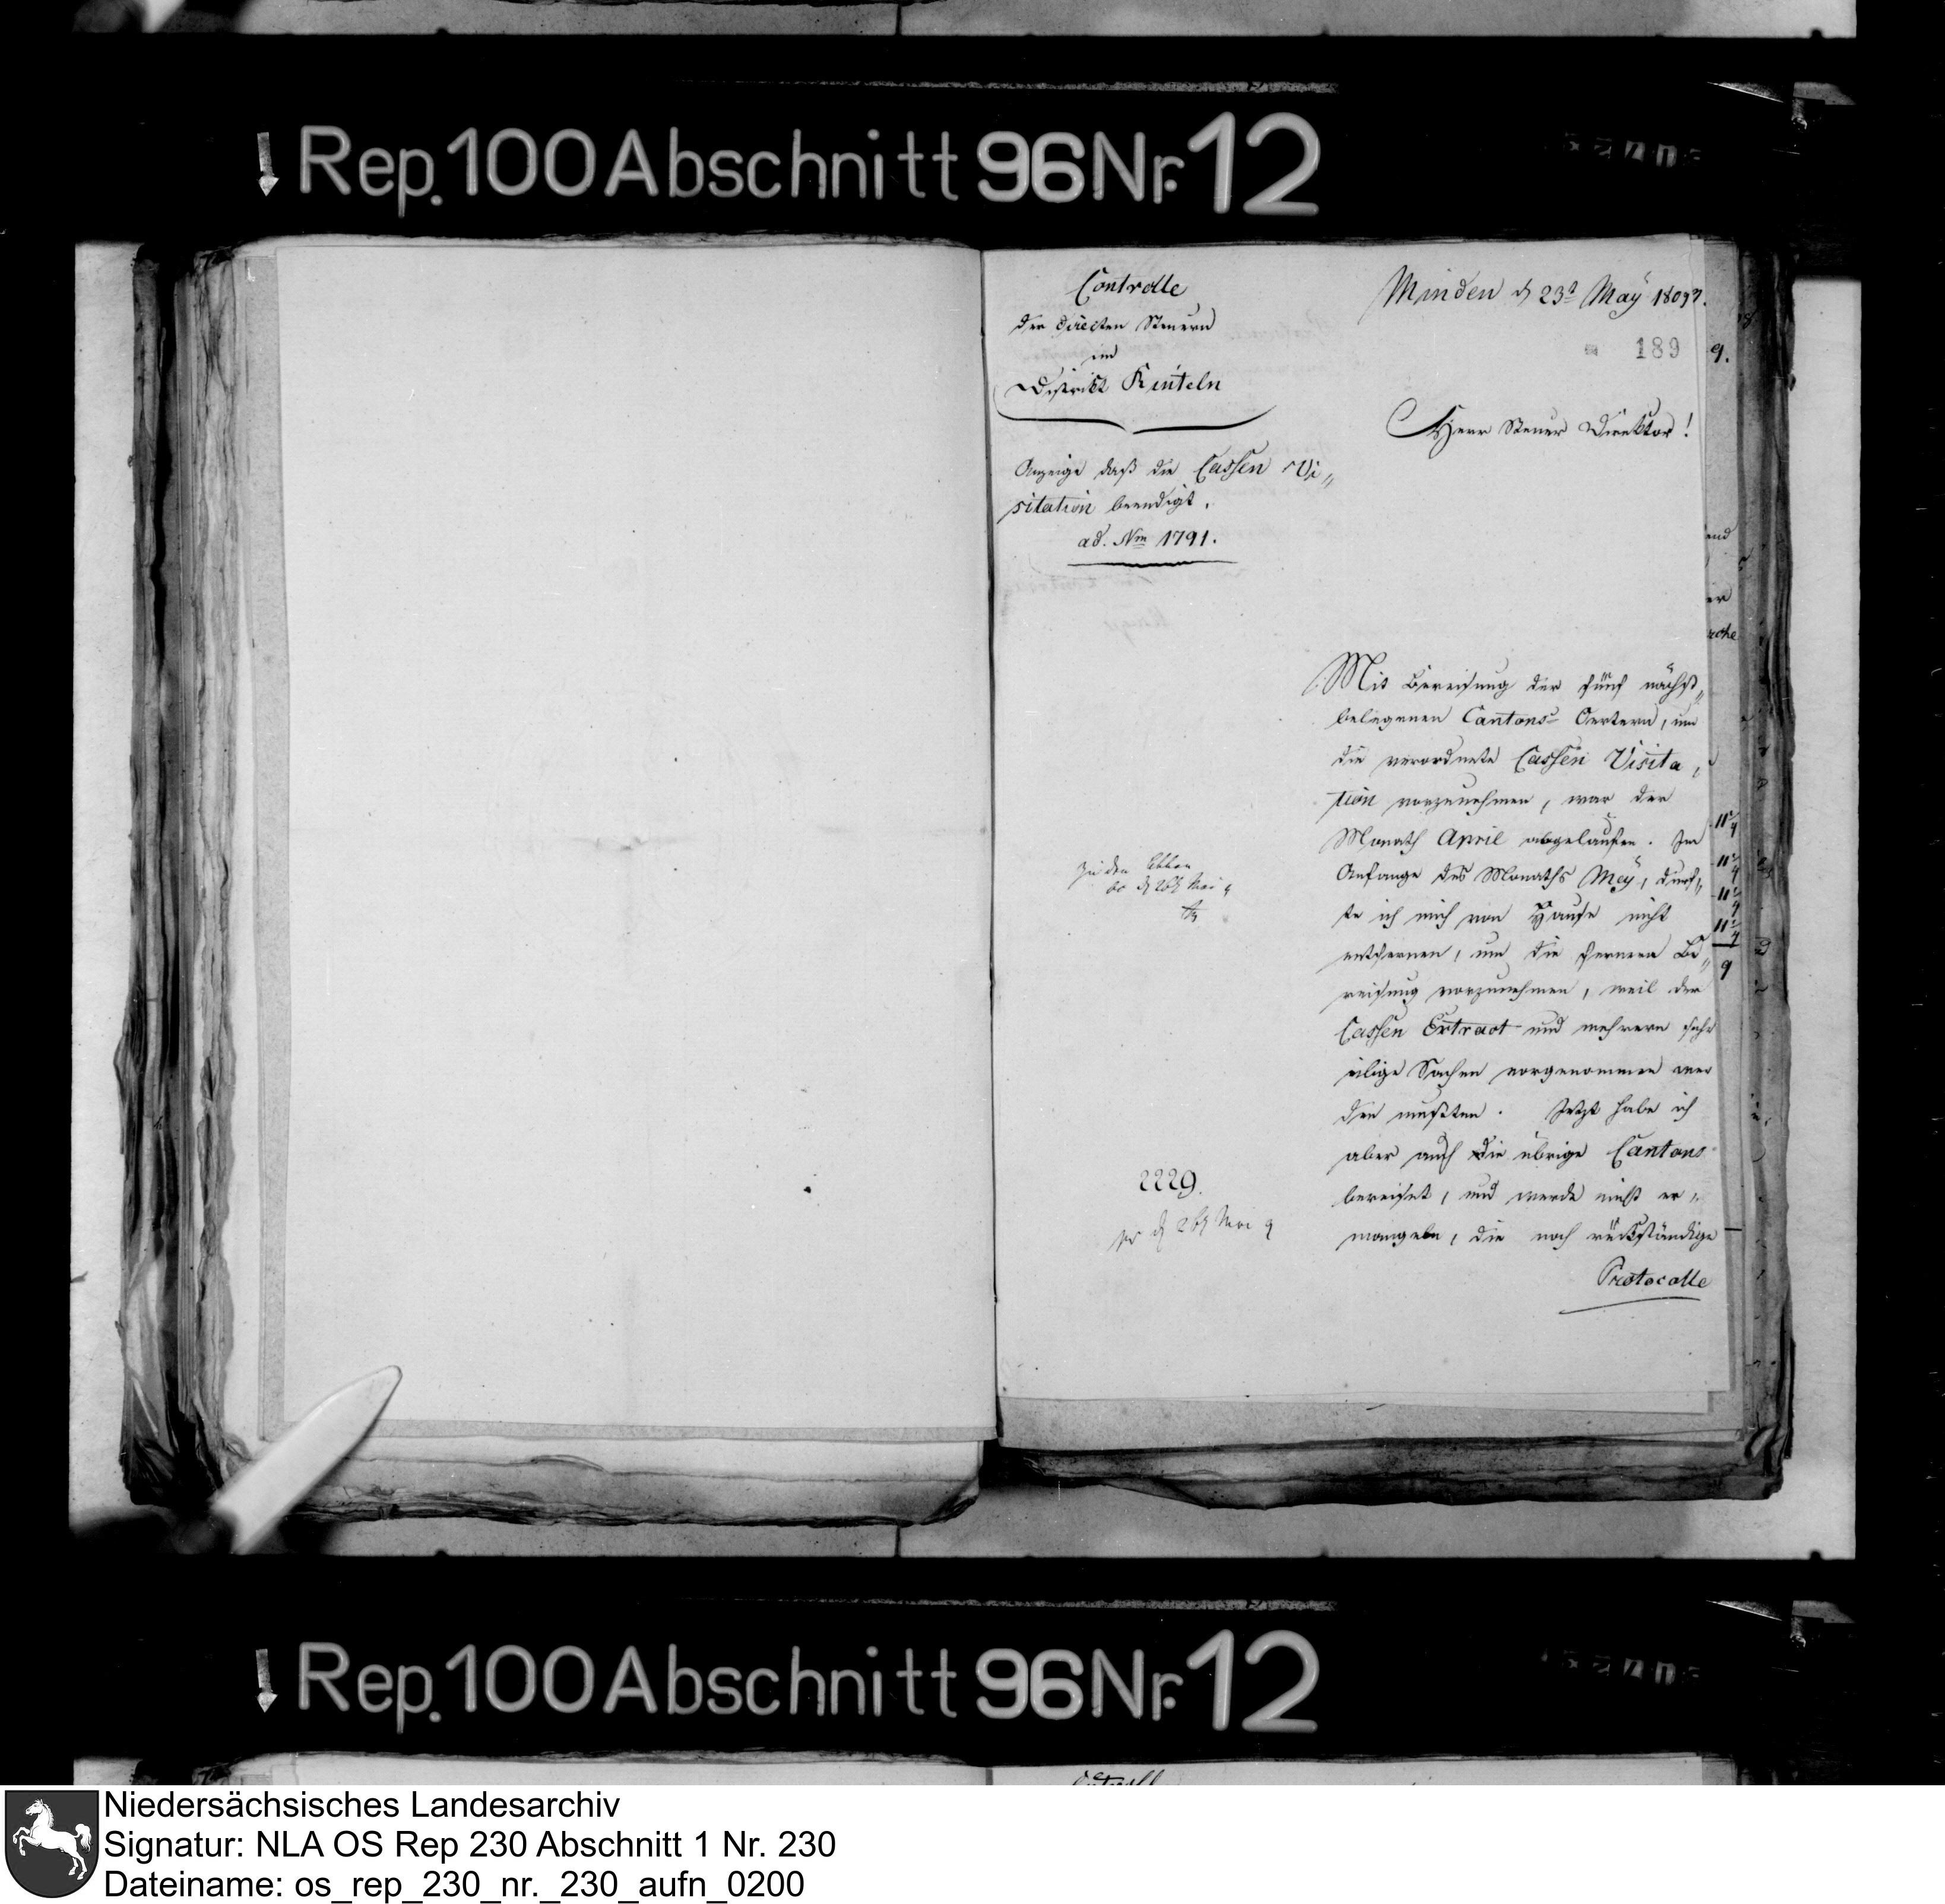 Rep. 100 Abschnitt 96 Nr. 12
Controlle
der directen Steuern
im
District Rinteln
Anzeige daß die Cassen Vi„
sitation beendigt.
ad. Nro 1791.
Zu den
d 26 Mai 9
2229.
d 26 Mai 9
Minden d 23t May 1809.
189
Herr Steuer Direktor!
Mit Bereisung der fünf nächst„
belegenen Cantons Oertern, um
die verordnete Cassen Visita„
tion vorzunehmen, war der
Monath April abgelaufen. Im
Anfange des Monaths Mey, durf„
te ich mich von Hause nicht
entfernen, um die fernere Be„
reisung vorzunehmen, weil der
Cassen Extract und mehrere sehr
eilige Sachen vorgenommen wer
den mußten. Jetzt habe ich
aber auch die übrige Cantons
bereiset, und werde nicht er„
mangeln, die noch rückständige
Protocolle
Rep. 100 Abschnitt 96 Nr. 12
Niedersächsisches Landesarchiv
Signatur: NLA OS Rep 230 Abschnitt 1 Nr. 230
Dateiname: os_rep_230_nr._230_aufn_0200